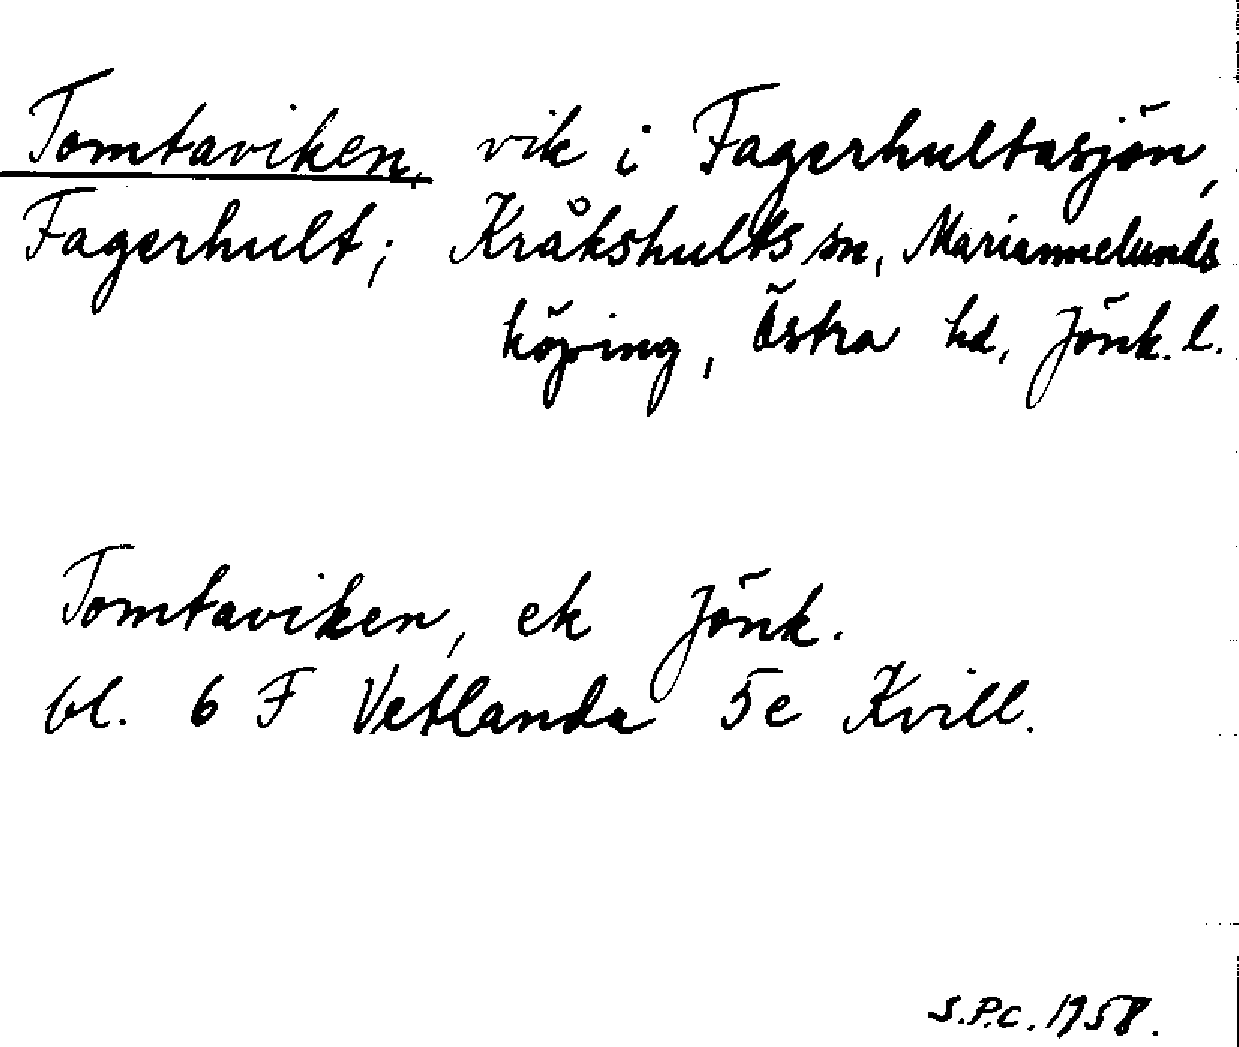 Tomtaviken, vik i Fagerhultasjön,
Fagerhult; Kråkshults sn, Mariannelunds
köping, Östra hd, Jönk. l.
Tomtaviken, ek Jönk.
bl. 6 F Vetlanda 5e Kvill.
S.P.C. 1958.